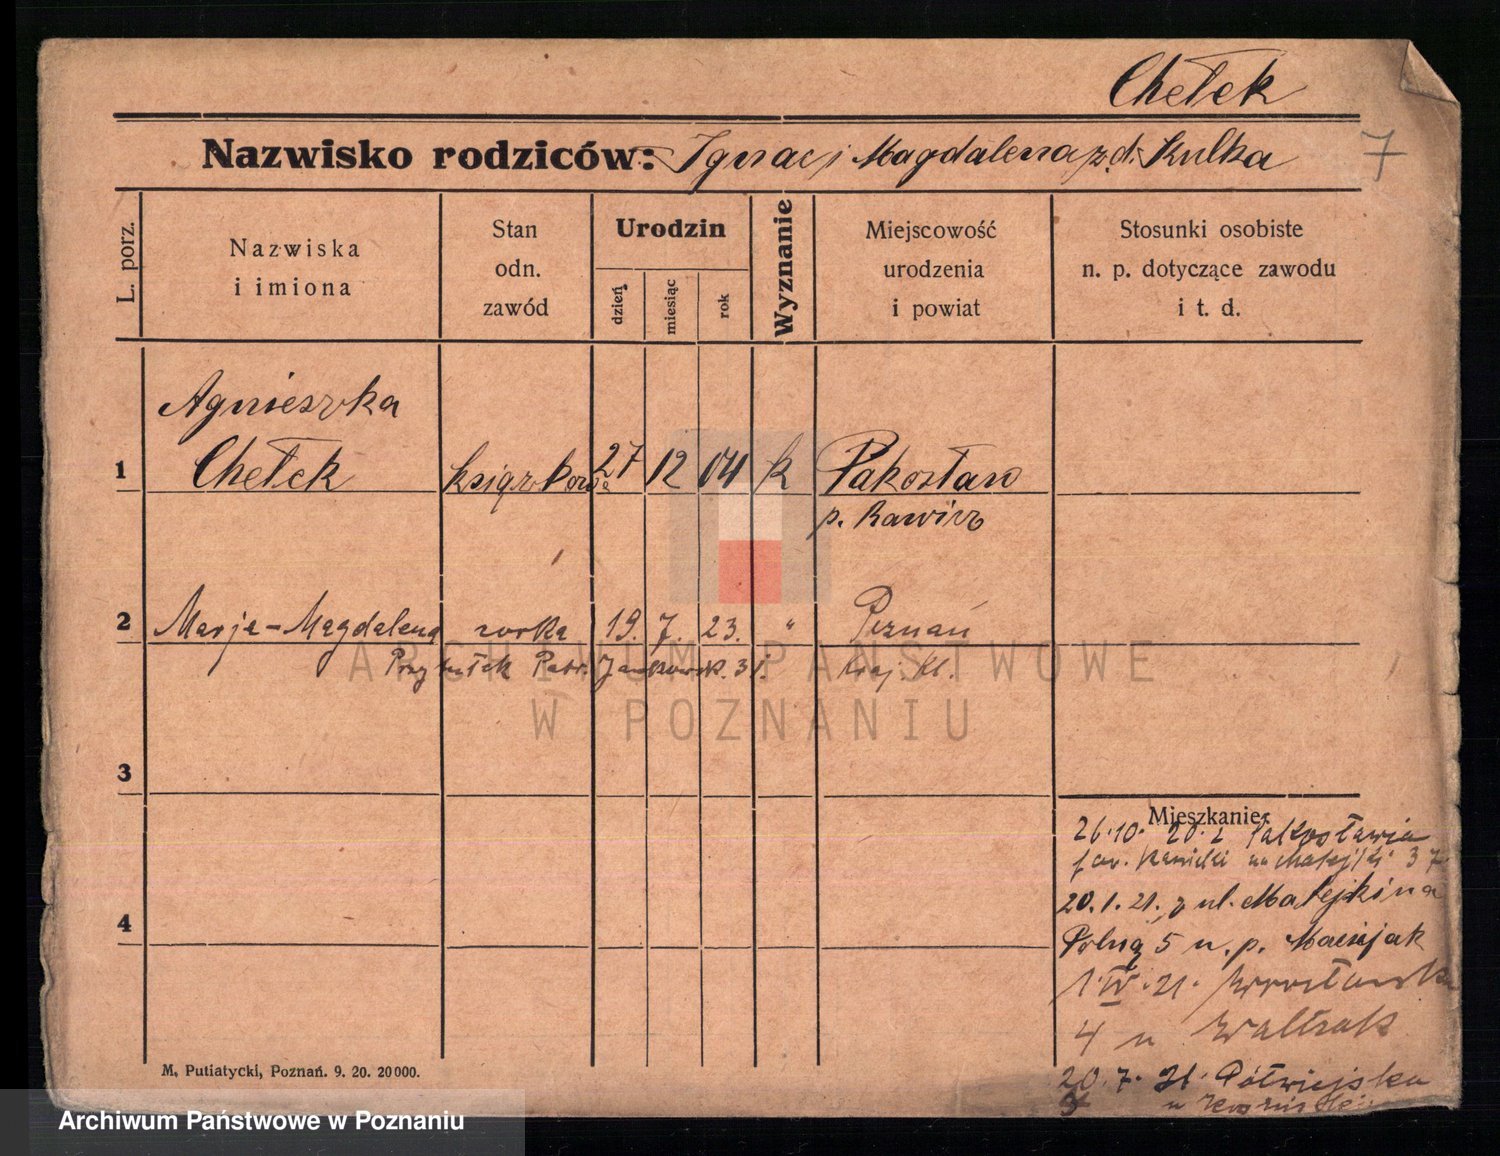 Chełek
Nazwisko rodziców: Ignac i Magdalena z d. Kulka
7
L. porz.
Nazwiska
i imiona
Stan
odn.
zawód
Urodzin
dzień
miesiąc
rok
Wyznanie
Miejscowość
urodzenia
i powiat
Stosunki osobiste
n. p. dotyczące zawodu
i t. d.
Agnieszka
1 Chełek 27 12 04 k Pakosław
p. Rawicz
2 Marja-Magdalena corka 19. 7. 23. " Poznań
3
Mieszkanie:
26.10. 20. z Pakosławia
na Matejki 37
20.1.21. z ul. Matejki na
4 Polną 5 u. p. Maciejak
1.IV.21.
4 u
20.7.21. Półwiejska
M. Putiatycki, Poznań. 9. 20. 20000.
ARCHIWUM PAŃSTWOWE
W POZNANIU
Archiwum Państwowe w Poznaniu